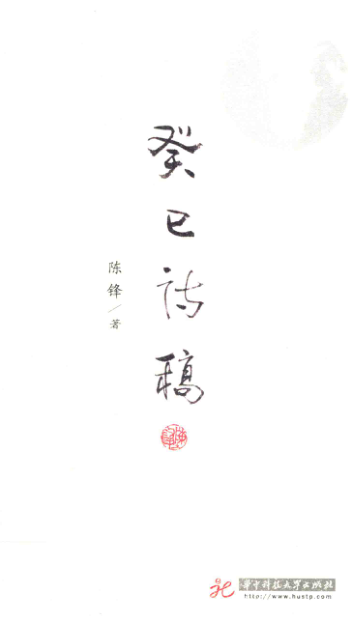 癸巳诗稿
陈锋/著
华中科技大学出版社
http://www.hustp.com